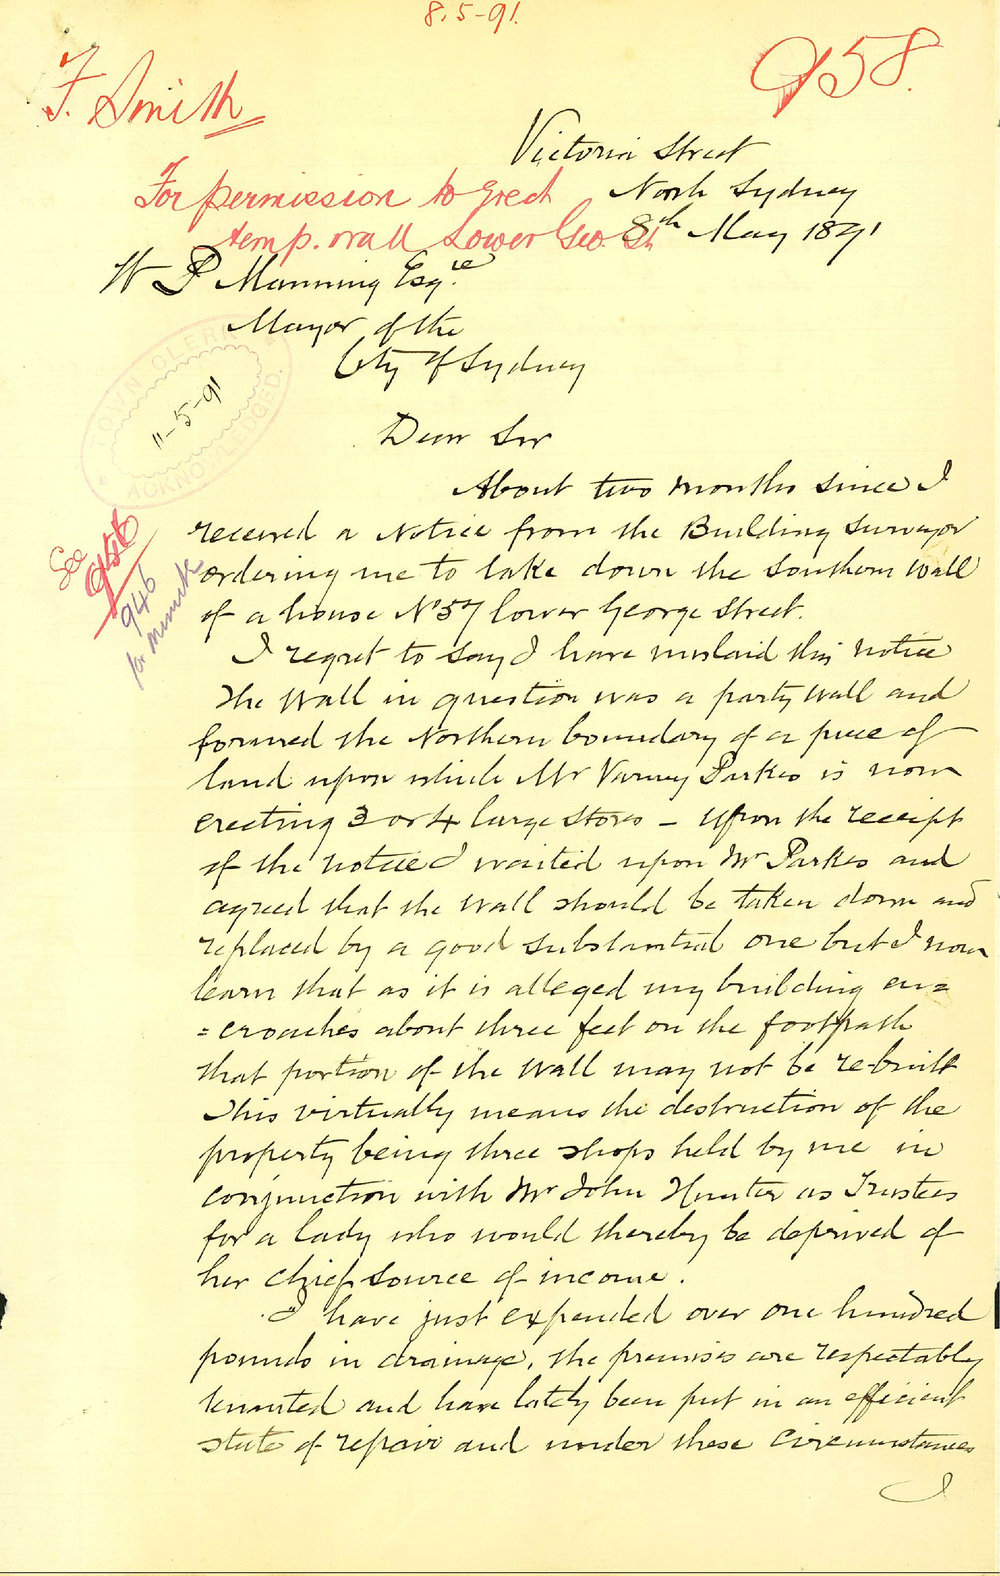 8.5-91.
F. Smith
958.
Victoria Street
For permission to Erect
North Sydney
temp. wall Lower Geo. St
8th May 1891
W P Manning Esqre
Mayor of the
City of Sydney
TOWN CLERK
11-5-91
ACKNOWLEDGED.
Dear Sir
About two months since I
received a Notice from the Building Surveyor
See
ordering me to take down the Southern Wall
946
for minute
of a house No 57 lower George Street.
I regret to say I have mislaid this notice
The Wall in question was a party wall and
formed the Northern boundary of a piece of
land upon which Mr Varney Parkes is now
erecting 3 or 4 large Stores - Upon the receipt
of the notice I waited upon Mr Parkes and
agreed that the Wall should be taken down and
replaced by a good substantial one but I now
learn that as it is alleged my building en=
=croaches about three feet on the footpath
that portion of the Wall may not be re-built
This virtually means the destruction of the
property being three shops held by me in
conjunction with Mr John Hunter as Trustees
for a lady who would thereby be deprived of
her chief source of income.
I have just expended over one hundred
pounds in drainage, the premises are respectably
tenanted and have lately been put in an efficient
state of repair and under these circumstances
I